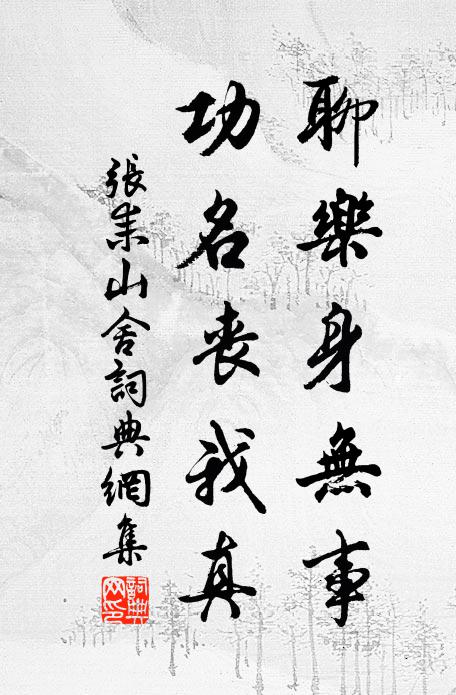 聊樂身無事
功名喪我真
張耒山舍詞典網集
詞典網印